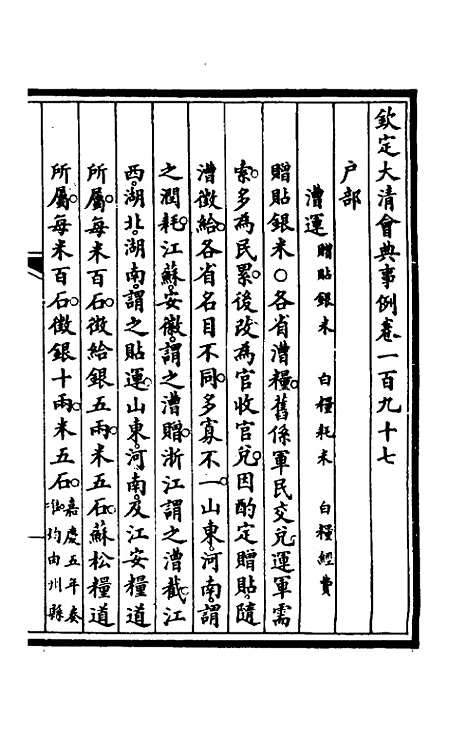 欽定大清會典事例卷一百九十七
戶部
漕運 贈貼銀米 白糧耗米 白糧經費
贈貼銀米○各省漕糧。舊係軍民交兌。運軍需
索。多為民累。後改為官收官兌。因酌定贈貼。隨
漕徵給。各省名目不同。多寡不一。山東。河南。謂
之潤耗。江蘇。安徽。謂之漕贈。浙江謂之漕截。江
西。湖北。湖南。謂之貼運。山東。河南。及江安糧道
所屬。每米百石。徵給銀五兩。米五石。蘇松糧道
所屬。每米百石。徵銀十兩。米五石。嘉慶五年奏
均由州縣